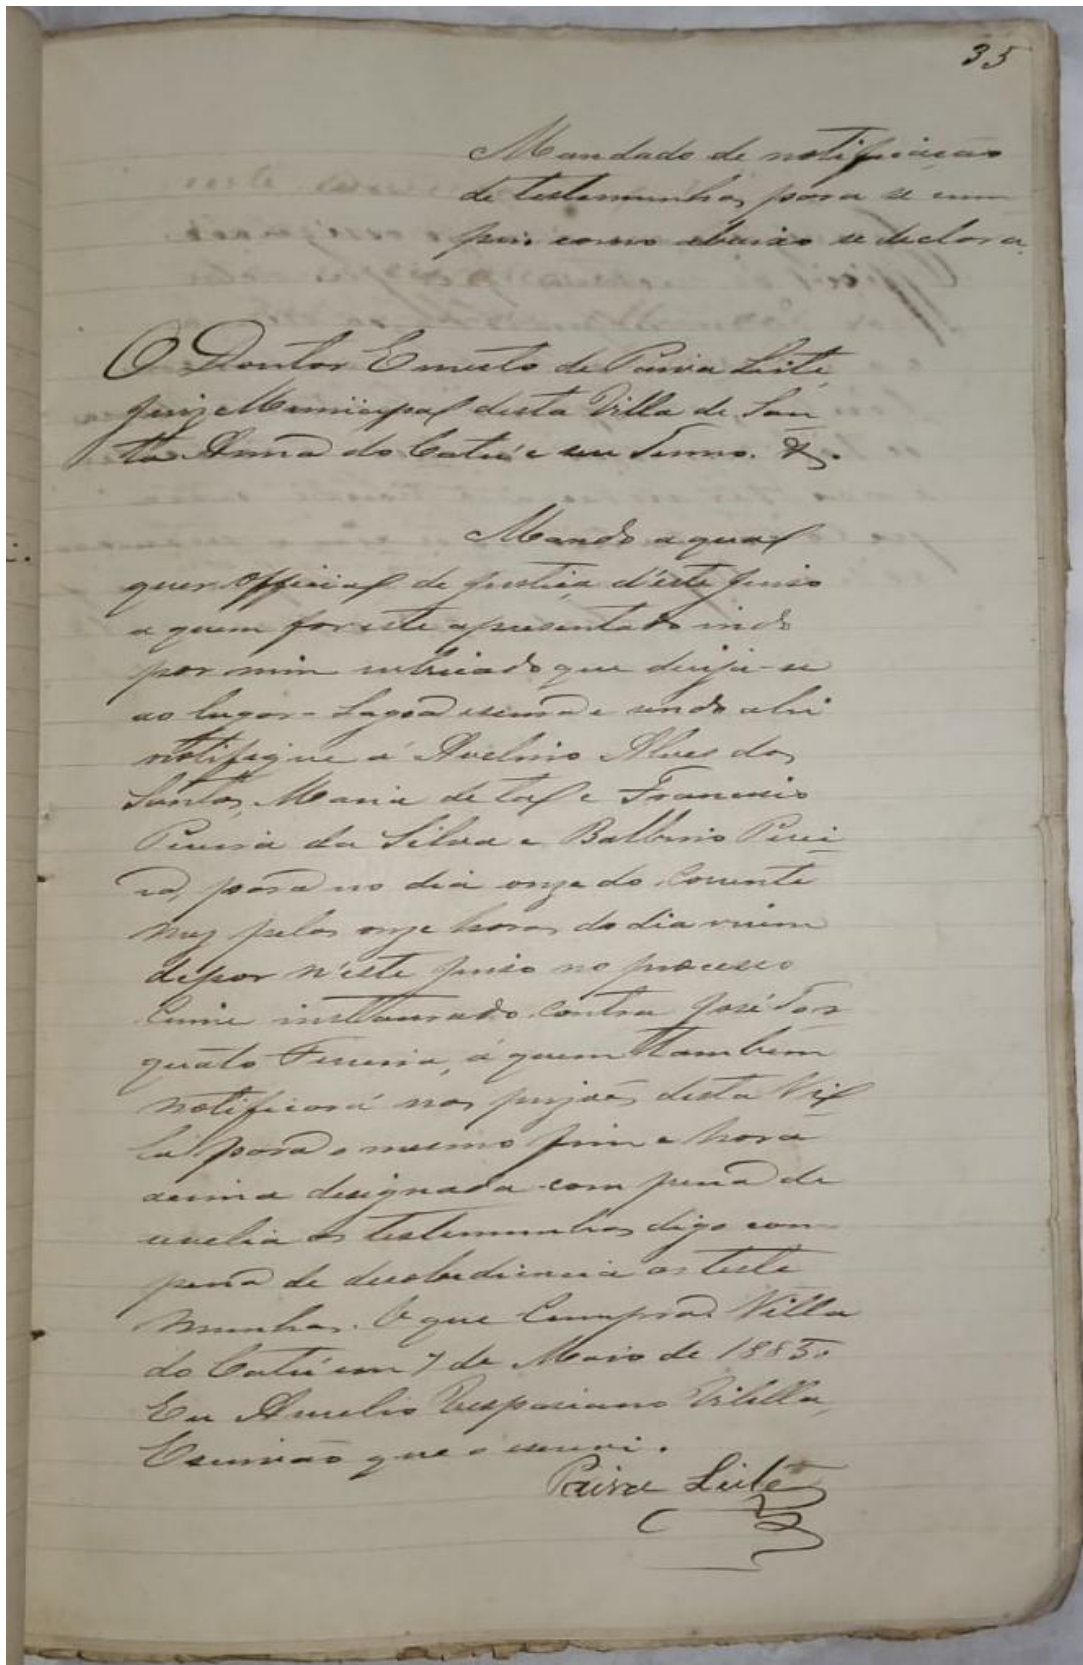 35
Mandado de notificação
de testemunhas para se cum
prir como abaixo se declara.
O Doutor Ernesto de Paiva Leite
Juiz Municipal desta Villa de San
ta Anna do Catú e seu Termo. &.
Mando a qual
quer Official de Justiça d'este Juiso
a quem for este apresentado indo
por mim rubricado que dirija-se
ao lugar - Lagoa e sendo ahi
notifique á Avelino Alves dos
Santos, Maria de tal e Francisco
Pereira da Silva e Balbino Perei
ra, para no dia onze do Corrente
mez pelas onze horas do dia virem
depor n'este Juiso no processo
Crime instaurado contra José Tor
quato Ferreira, á quem tambem
notificará nas prizões desta Vil
la para o mesmo fim e hora
acima designada com pena de
revelia as testemunhas digo com
pena de desobediencia as teste
munhas. O que Cumpra. Villa
do Catú em 7 de Maio de 1885.
Eu Aurelio Vespasiano Vilella,
Escrivão que o escrevi.
Paiva Leite